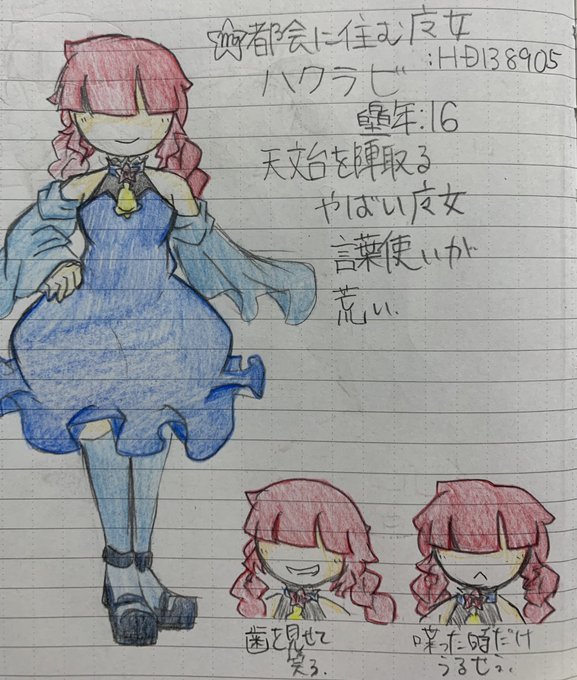 都会に住む広女
:HD138905
ハクラビ
年:16
天文台を陣取る
やばい広女
言葉使いが
荒い.
歯を見せて
笑る.
喋った時だけ
うるせぇ.